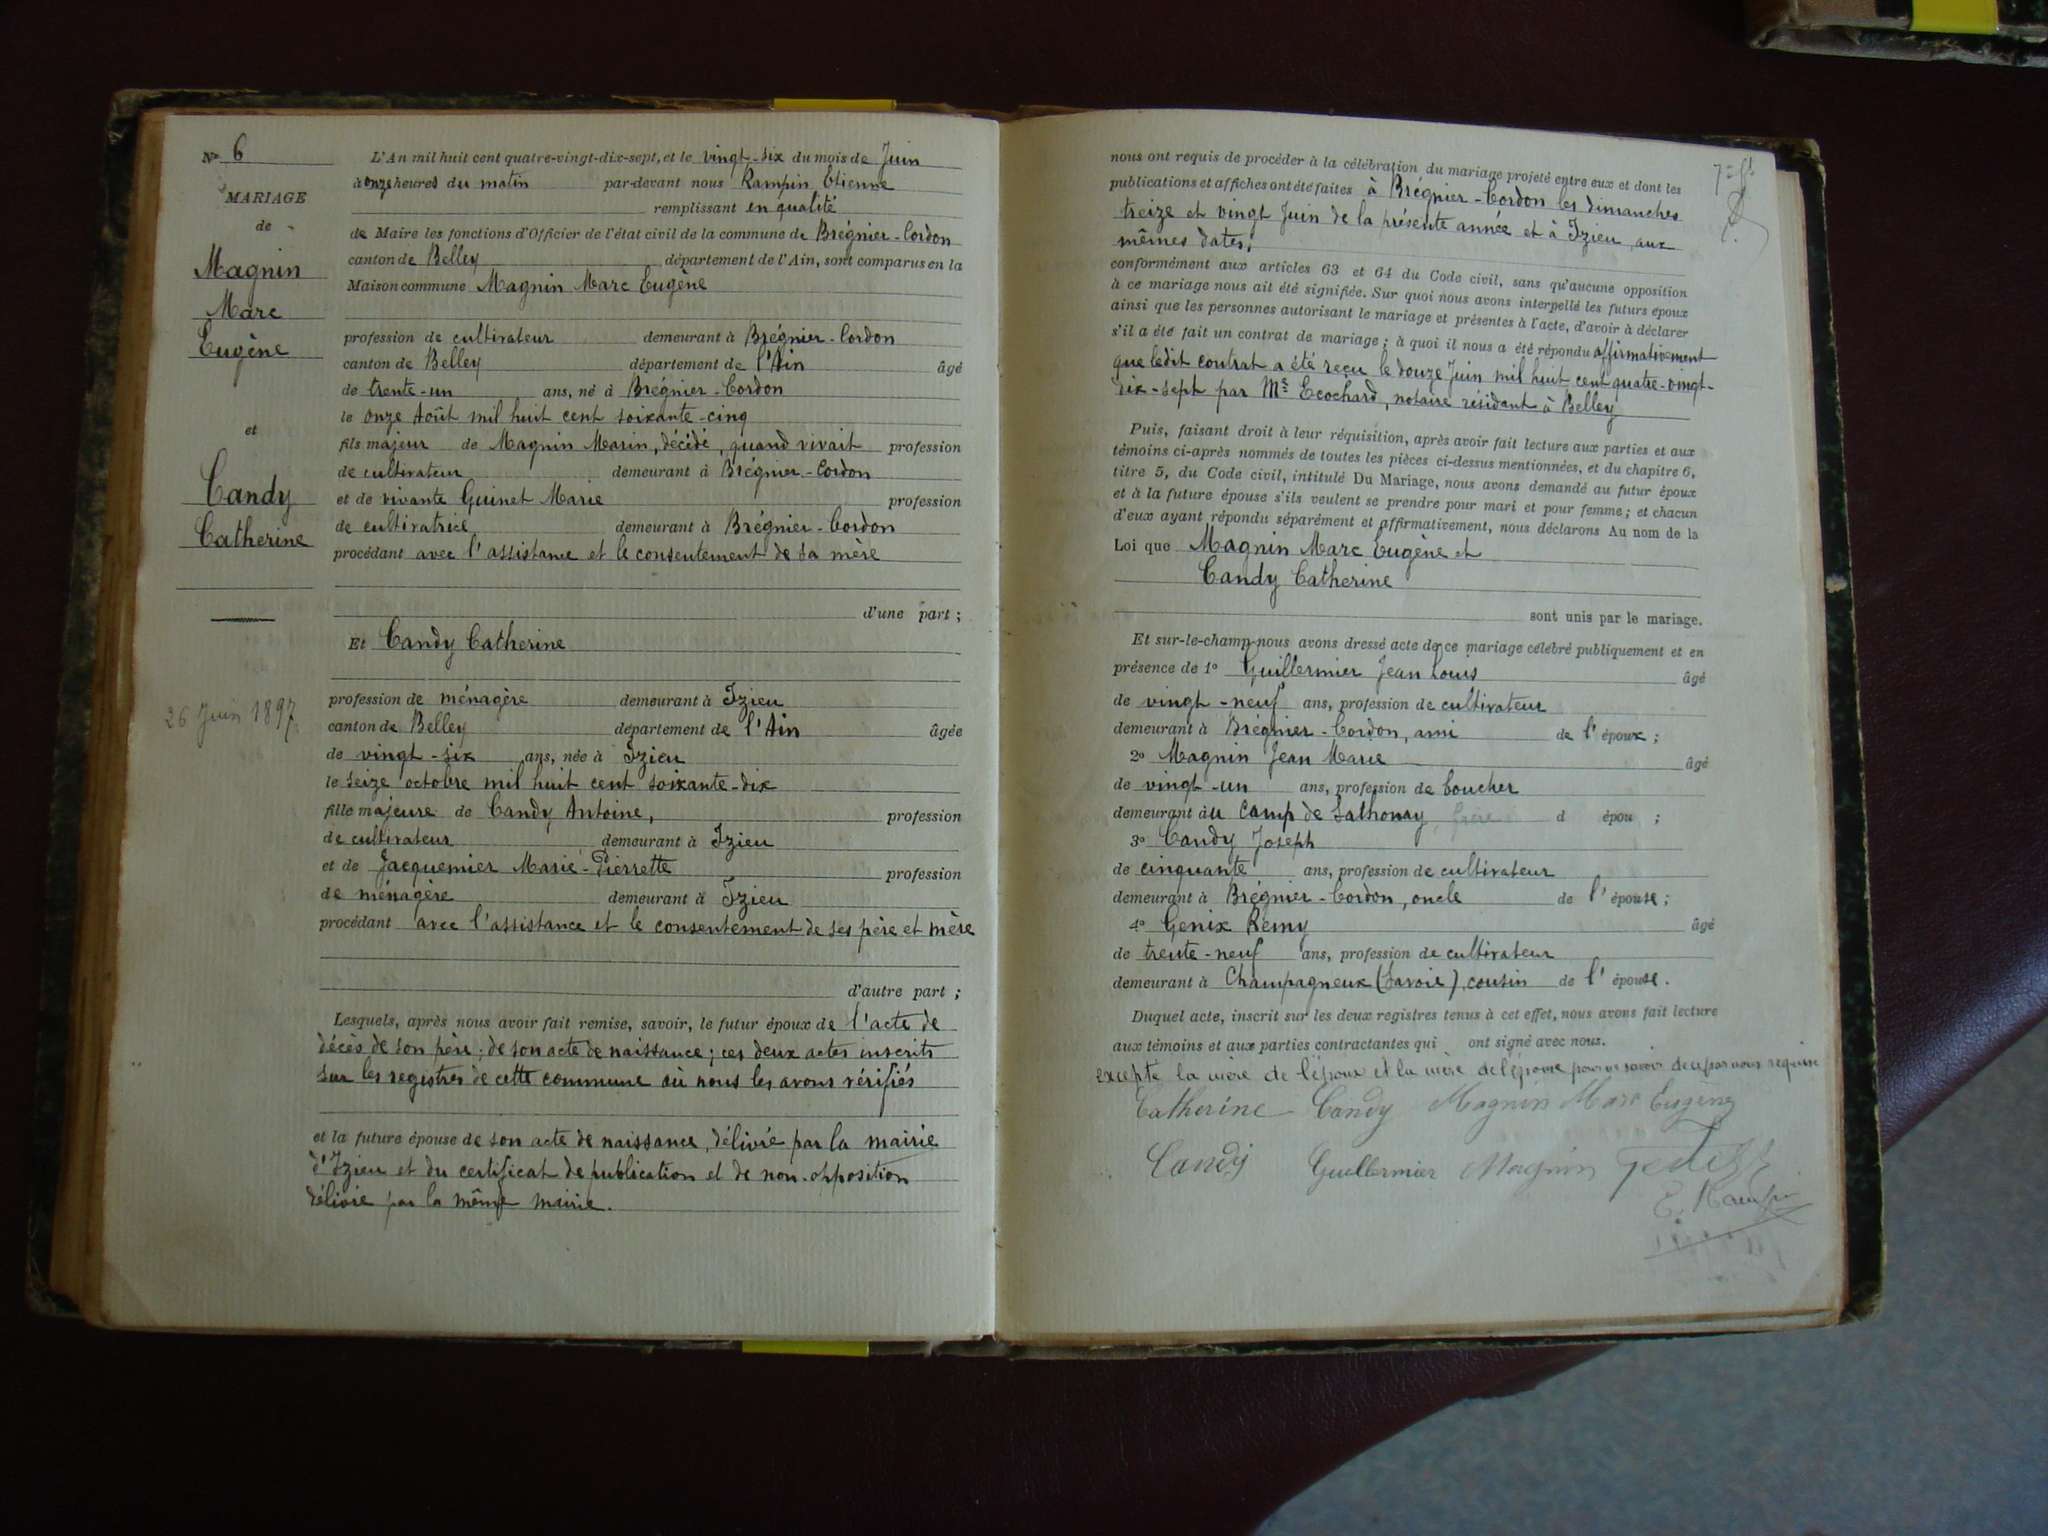 No 6
MARIAGE
de
Magnin
Marc
Eugène
et
Candy
Catherine
26 Juin 1897
L'An mil huit cent quatre-vingt-dix-sept, et le vingt-six du mois de Juin
à onze heures du matin par-devant nous Rampin Etienne
remplissant en qualité
de Maire les fonctions d'Officier de l'état civil de la commune de Brégnier-Cordon
canton de Belley département de l'Ain, sont comparus en la
Maison commune Magnin Marc Eugène
profession de cultivateur demeurant à Brégnier-Cordon
canton de Belley département de l'Ain âgé
de trente-un ans, né à Brégnier-Cordon
le onze Août mil huit cent soixante-cinq
fils majeur de Magnin Marin, décédé, quand vivait profession
de cultivateur demeurant à Brégnier-Cordon
et de vivante Guinet Marie profession
de cultivatrice demeurant à Brégnier-Cordon
procédant avec l'assistance et le consentement de sa mère
d'une part ;
Et Candy Catherine
profession de ménagère demeurant à Izieu
canton de Belley département de l'Ain âgée
de vingt-six ans, née à Izieu
le seize octobre mil huit cent soixante-dix
fille majeure de Candy Antoine, profession
de cultivateur demeurant à Izieu
et de Jacquemier Marie-Pierrette profession
de ménagère demeurant à Izieu
procédant avec l'assistance et le consentement de ses père et mère
d'autre part ;
Lesquels, après nous avoir fait remise, savoir, le futur époux de l'acte de
décès de son père ; de son acte de naissance ; ces deux actes inscrits
sur les registres de cette commune où nous les avons vérifiés
et la future épouse de son acte de naissance, délivré par la mairie
d'Izieu et du certificat de publication et de non-opposition
délivré par la même mairie.
nous ont requis de procéder à la célébration du mariage projeté entre eux et dont les
publications et affiches ont été faites à Brégnier-Cordon les dimanches
treize et vingt Juin de la présente année et à Izieu aux
mêmes dates,
conformément aux articles 63 et 64 du Code civil, sans qu'aucune opposition
à ce mariage nous ait été signifiée. Sur quoi nous avons interpellé les futurs époux
ainsi que les personnes autorisant le mariage et présentes à l'acte, d'avoir à déclarer
s'il a été fait un contrat de mariage ; à quoi il nous a été répondu affirmativement
que ledit contrat a été reçu le douze Juin mil huit cent quatre-vingt-
dix-sept par Me Ecochard, notaire résidant à Belley
Puis, faisant droit à leur réquisition, après avoir fait lecture aux parties et aux
témoins ci-après nommés de toutes les pièces ci-dessus mentionnées, et du chapitre 6,
titre 5, du Code civil, intitulé Du Mariage, nous avons demandé au futur époux
et à la future épouse s'ils veulent se prendre pour mari et pour femme ; et chacun
d'eux ayant répondu séparément et affirmativement, nous déclarons Au nom de la
Loi que Magnin Marc Eugène et
Candy Catherine
sont unis par le mariage.
Et sur-le-champ nous avons dressé acte de ce mariage célébré publiquement et en
présence de 1o Guillermier Jean Louis âgé
de vingt-neuf ans, profession de cultivateur
demeurant à Brégnier-Cordon, ami de l'époux ;
2o Magnin Jean Marie âgé
de vingt-un ans, profession de boucher
demeurant au Camp de Sathonay, frère d épou ;
3o Candy Joseph
de cinquante ans, profession de cultivateur
demeurant à Brégnier-Cordon, oncle de l'épouse ;
4o Genix Rémy âgé
de trente-neuf ans, profession de cultivateur
demeurant à Champagneux (Savoie), cousin de l'épouse.
Duquel acte, inscrit sur les deux registres tenus à cet effet, nous avons fait lecture
aux témoins et aux parties contractantes qui ont signé avec nous.
excepté la mère de l'époux et la mère de l'épouse pour ne savoir de ce par nous requise
Catherine Candy Magnin Marc Eugène
Candy Guillermier Magnin
E. Rampin